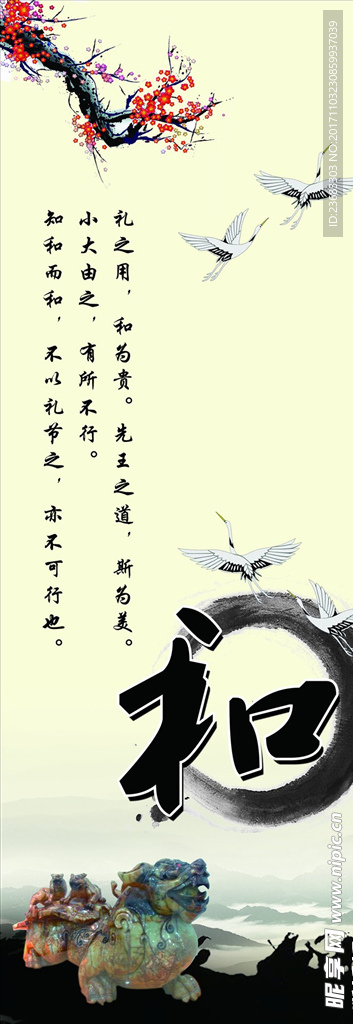 礼之用，和为贵。先王之道，斯为美。
小大由之，有所不行。
知和而和，不以礼节之，亦不可行也。
和
昵享网 www.nipic.cn